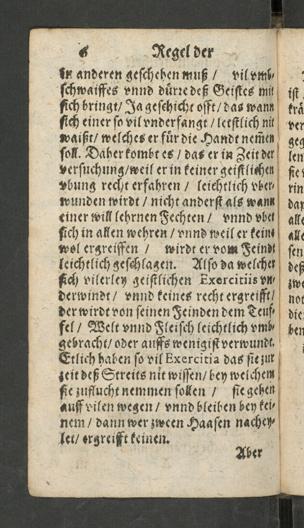 6 Regel der
in anderen geschehen muß / vil vmb-
schwaiffes vnnd dürre deß Geistes mit
sich bringt / Ja geschicht offt / das wann
sich einer so vil vnderfangt / letstlich nit
waißt / welches er für die Handt nem̃en
soll. Daher kombt es / das er in Zeit der
versuchung / weil er in keiner geistlichen
vbung recht erfahren / leichtlich vber-
wunden wirdt / nicht anderst als wann
einer will lehrnen Fechten / vnnd vbet
sich in allen wehren / vnnd weil er keine
wol ergreiffen / wirdt er vom Feindt
leichtlich geschlagen. Also da welcher
sich vilerley geistlichen Exercitiis vn-
derwindt / vnnd keines recht ergreifft /
der wirdt von seinen Feinden dem Teuf-
fel / Welt vnnd Fleisch leichtlich vmb-
gebracht / oder auffs wenigist verwundt.
Etlich haben so vil Exercitia das sie zur
zeit deß Streits nit wissen / bey welchem
sie zuflucht nemmen sollen / sie gehen
auff vilen wegen / vnnd bleiben bey kei-
nem / dann wer zween Haasen nachey-
let / ergreifft keinen.
Aber